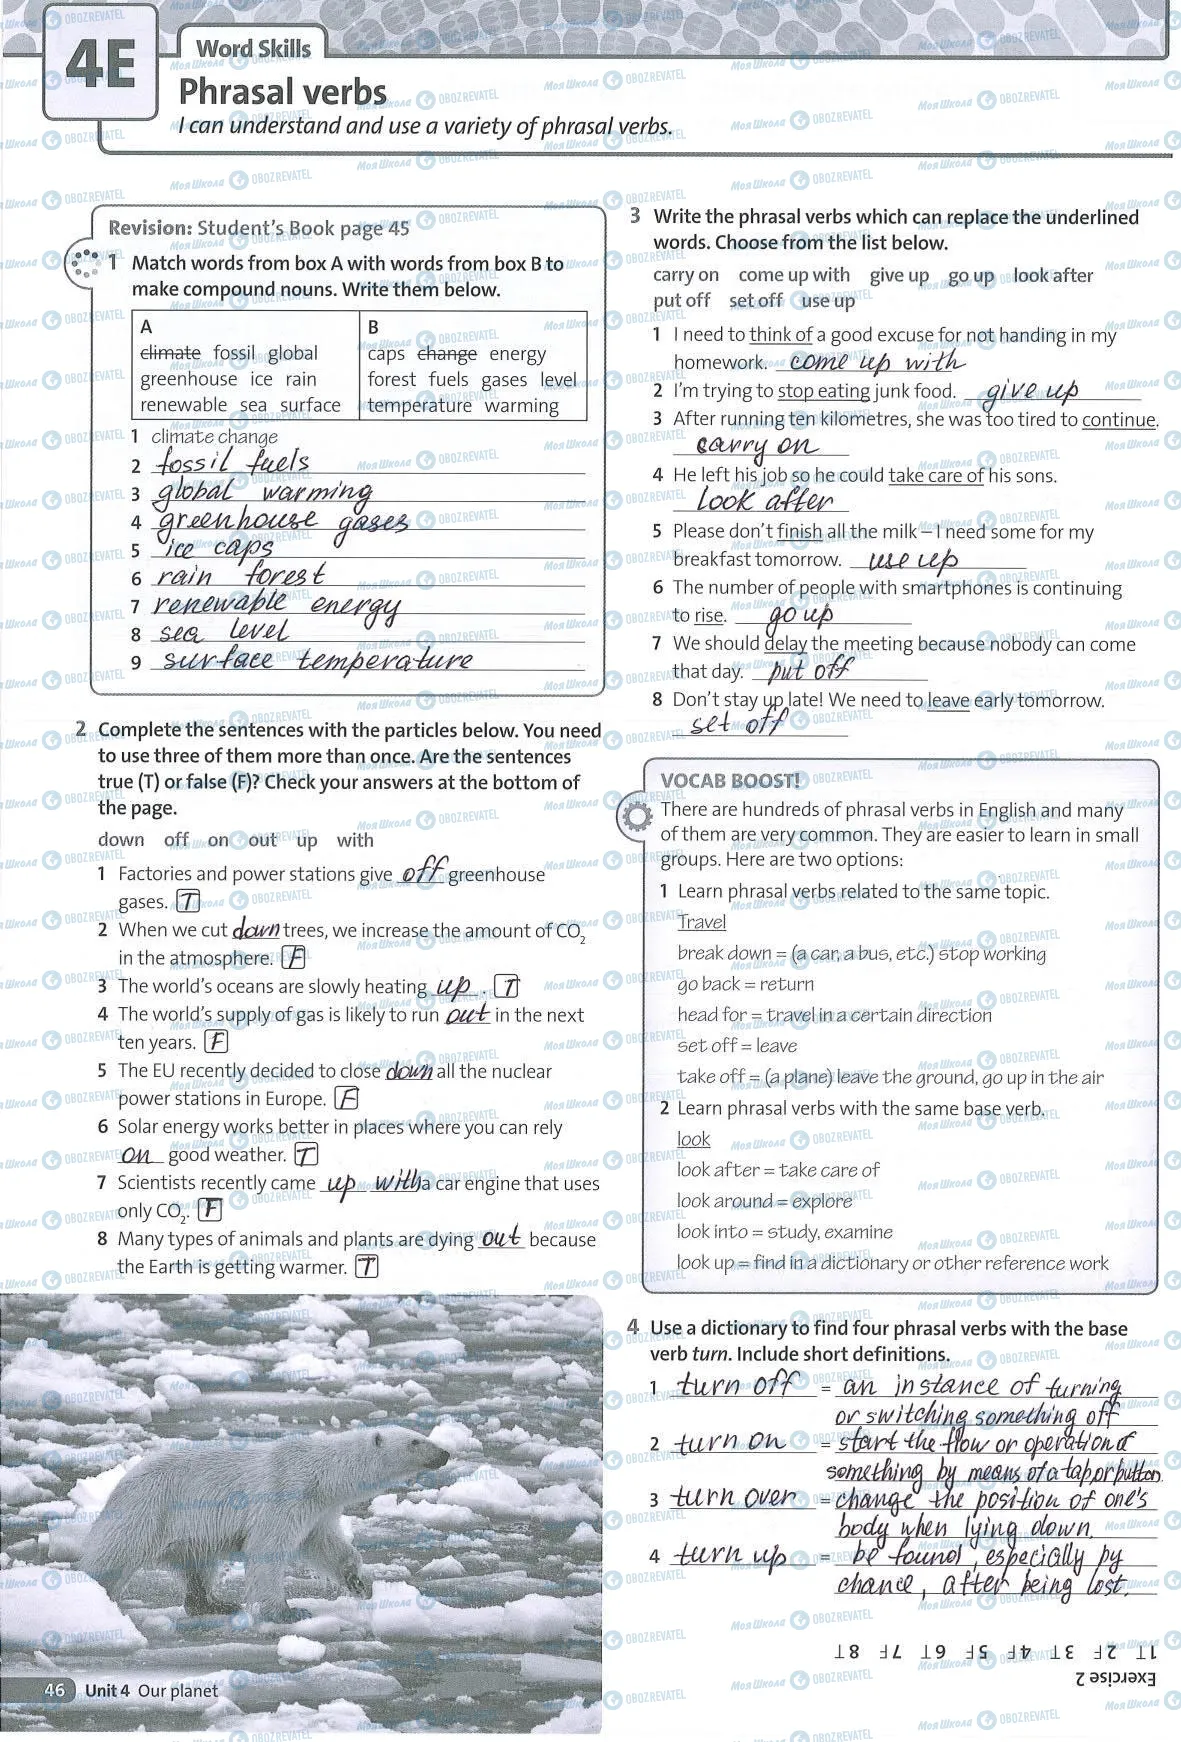 4E
Word Skills
Phrasal verbs
I can understand and use a variety of phrasal verbs.
Revision: Student's Book page 45
1 Match words from box A with words from box B to
make compound nouns. Write them below.
A
climate fossil global
greenhouse ice rain
renewable sea surface
B
caps change energy
forest fuels gases level
temperature warming
1 climate change
2 fossil fuels
3 global warming
4 greenhouse gases
5 ice caps
6 rain forest
7 renewable energy
8 sea level
9 surface temperature
2 Complete the sentences with the particles below. You need
to use three of them more than once. Are the sentences
true (T) or false (F)? Check your answers at the bottom of
the page.
down off on out up with
1 Factories and power stations give off greenhouse
gases. T
2 When we cut down trees, we increase the amount of CO2
in the atmosphere. F
3 The world's oceans are slowly heating up. T
4 The world's supply of gas is likely to run out in the next
ten years. F
5 The EU recently decided to close down all the nuclear
power stations in Europe. F
6 Solar energy works better in places where you can rely
on good weather. T
7 Scientists recently came up with a car engine that uses
only CO2. F
8 Many types of animals and plants are dying out because
the Earth is getting warmer. T
46 Unit 4 Our planet
3 Write the phrasal verbs which can replace the underlined
words. Choose from the list below.
carry on come up with give up go up look after
put off set off use up
1 I need to think of a good excuse for not handing in my
homework. come up with
2 I'm trying to stop eating junk food. give up
3 After running ten kilometres, she was too tired to continue.
carry on
4 He left his job so he could take care of his sons.
look after
5 Please don't finish all the milk – I need some for my
breakfast tomorrow. use up
6 The number of people with smartphones is continuing
to rise. go up
7 We should delay the meeting because nobody can come
that day. put off
8 Don't stay up late! We need to leave early tomorrow.
set off
VOCAB BOOST!
There are hundreds of phrasal verbs in English and many
of them are very common. They are easier to learn in small
groups. Here are two options:
1 Learn phrasal verbs related to the same topic.
Travel
break down = (a car, a bus, etc.) stop working
go back = return
head for = travel in a certain direction
set off = leave
take off = (a plane) leave the ground, go up in the air
2 Learn phrasal verbs with the same base verb.
look
look after = take care of
look around = explore
look into = study, examine
look up = find in a dictionary or other reference work
4 Use a dictionary to find four phrasal verbs with the base
verb turn. Include short definitions.
1 turn off = an instance of turning
or switching something off
2 turn on = start the flow or operation of
something by means of a tap or button
3 turn over = change the position of one's
body when lying down.
4 turn up = be found, especially by
chance, after being lost.
Exercise 2
1T 2F 3T 4F 5F 6T 7F 8T
МояШкола OBOZREVATEL